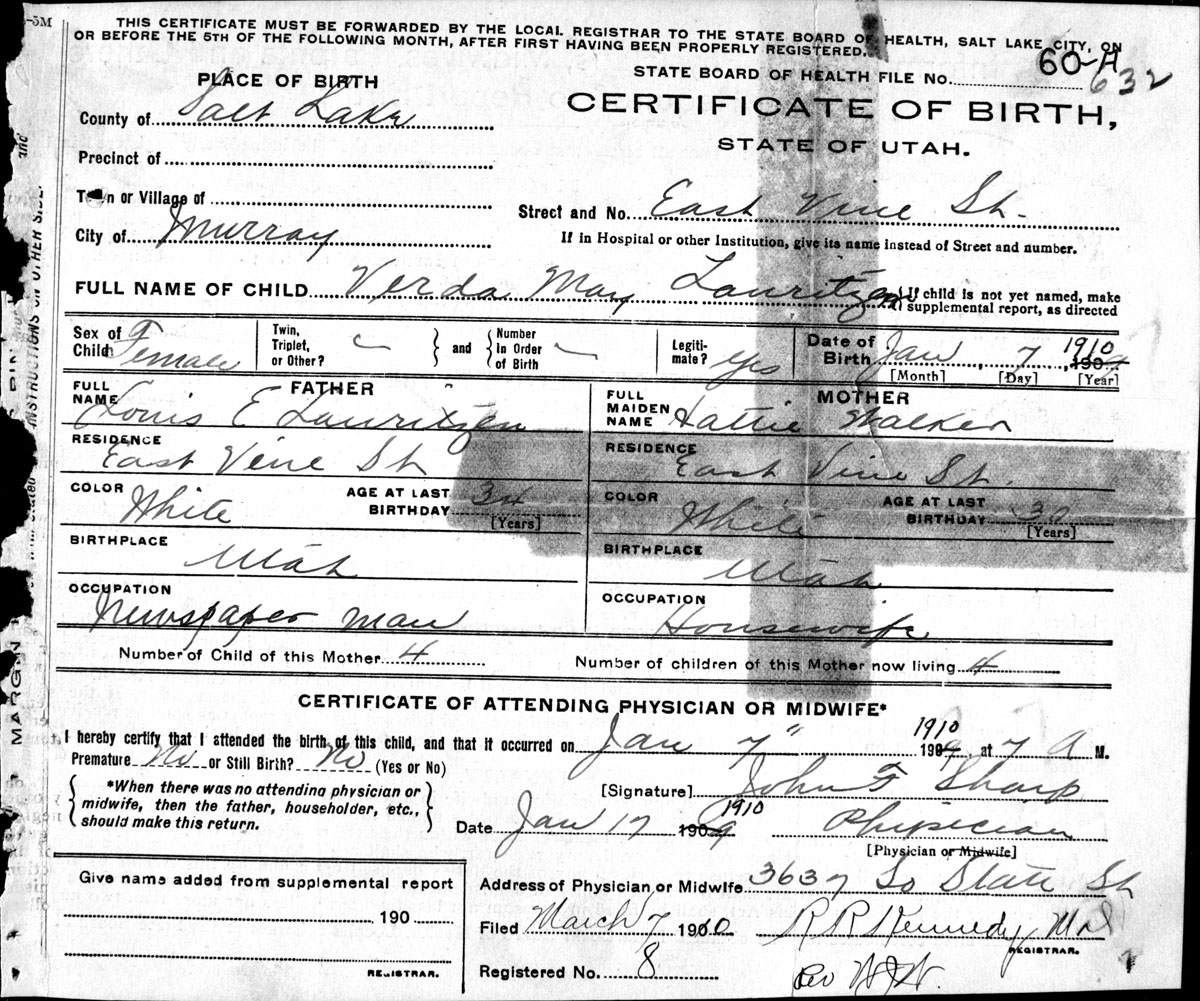 -5M
THIS CERTIFICATE MUST BE FORWARDED BY THE LOCAL REGISTRAR TO THE STATE BOARD OF HEALTH, SALT LAKE CITY, ON
OR BEFORE THE 5TH OF THE FOLLOWING MONTH, AFTER FIRST HAVING BEEN PROPERLY REGISTERED.
60-A
STATE BOARD OF HEALTH FILE No. 632
PLACE OF BIRTH
CERTIFICATE OF BIRTH,
STATE OF UTAH.
County of Salt Lake
Precinct of
Town or Village of
City of Murray
Street and No. East Vine St.
If in Hospital or other Institution, give its name instead of Street and number.
FULL NAME OF CHILD Verda May Lauritzen
If child is not yet named, make
supplemental report, as directed
Sex of Child Female
Twin, Triplet, or Other?
and
Number In Order of Birth
Legitimate? Yes
Date of Birth Jan 7 1910 1909
[Month] [Day] [Year]
FATHER
FULL NAME Louis E Lauritzen
RESIDENCE
East Vine St
COLOR White
AGE AT LAST BIRTHDAY 34
[Years]
BIRTHPLACE
Utah
OCCUPATION
Newspaper man
MOTHER
FULL MAIDEN NAME Hattie Walker
RESIDENCE
East Vine St.
COLOR White
AGE AT LAST BIRTHDAY 30
[Years]
BIRTHPLACE
Utah
OCCUPATION
Housewife
Number of Child of this Mother 4
Number of children of this Mother now living 4
CERTIFICATE OF ATTENDING PHYSICIAN OR MIDWIFE*
I hereby certify that I attended the birth of this child, and that it occurred on Jan 7" 1910 1909, at 7 A M.
Premature No or Still Birth? No (Yes or No)
*When there was no attending physician or
midwife, then the father, householder, etc.,
should make this return.
[Signature] John F Sharp
Date Jan 17 1910 1909 Physician
[Physician or Midwife]
Give name added from supplemental report
190
REGISTRAR.
Address of Physician or Midwife 3637 So State St
Filed March 7 1910 R R Kennedy, Md
REGISTRAR.
Registered No. 8
MARGIN
INSTRUCTIONS